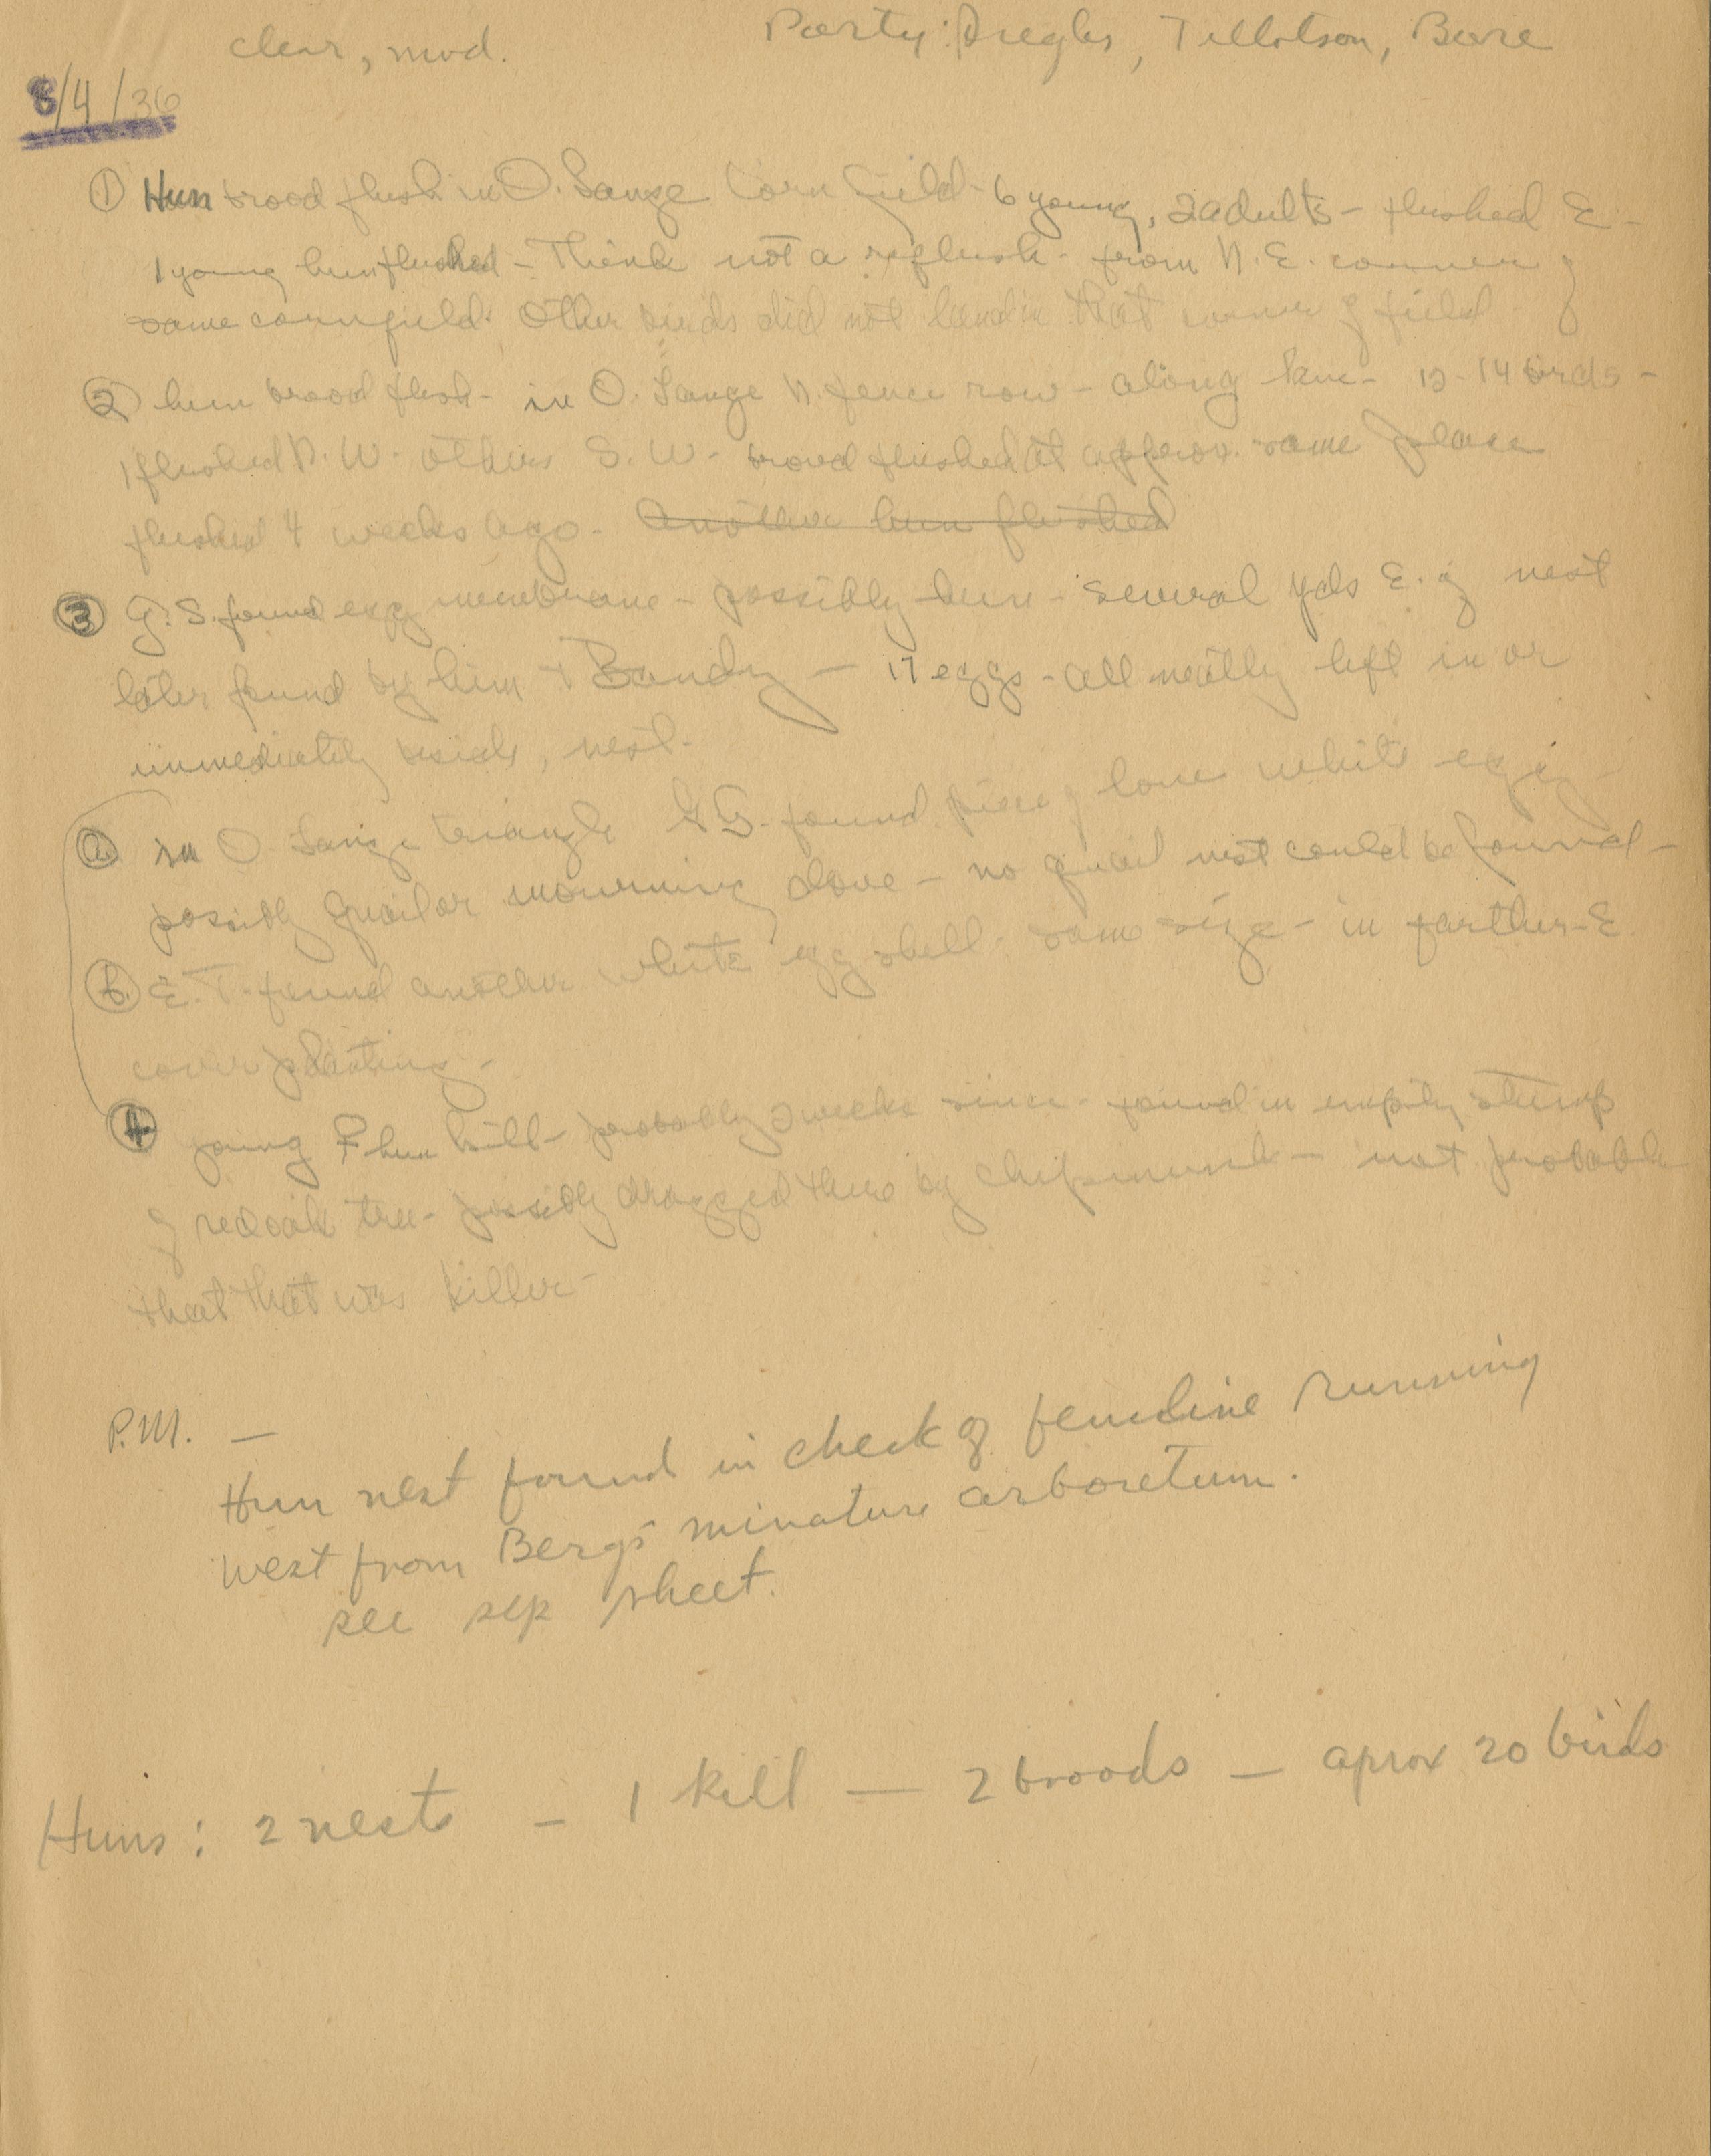 clear, mod.
Party: Tillotson, Bere
8/4/36
① Hun brood flush in O. Lange Corn field - 6 young, 2 adults - flushed E -
1 young hun flushed - Think not a reflush - from N.E. corner of
same cornfield. Other birds did not land in that corner of field
② hun brood flush - in O. Lange N. fence row - along lane - 12-14 birds -
1 flushed N.W. others S.W. - brood flushed at approx. same place
flushed 4 weeks ago - Another hun flushed
③ G.S. found egg membrane - possibly hun - several yds E. of nest
later found by him + Bandy - 17 eggs - all neatly left in or
immediately beside, nest.
a. in O. Lange triangle G.S. found piece of lone white egg -
possibly quail or mourning dove - no quail nest could be found -
b. E.T. found another white egg shell - same size - in farther E.
cover planting -
4. young ♀ hun kill - probably 2 weeks since - found in empty stump
of red oak tree - possibly dragged there by chipmunk - not probable
that that was killer -
P.M. -
Hun nest found in check of fenceline running
West from Bergs' minature arboretum.
see sep sheet.
Huns: 2 nests - 1 kill - 2 broods - aprox 20 birds